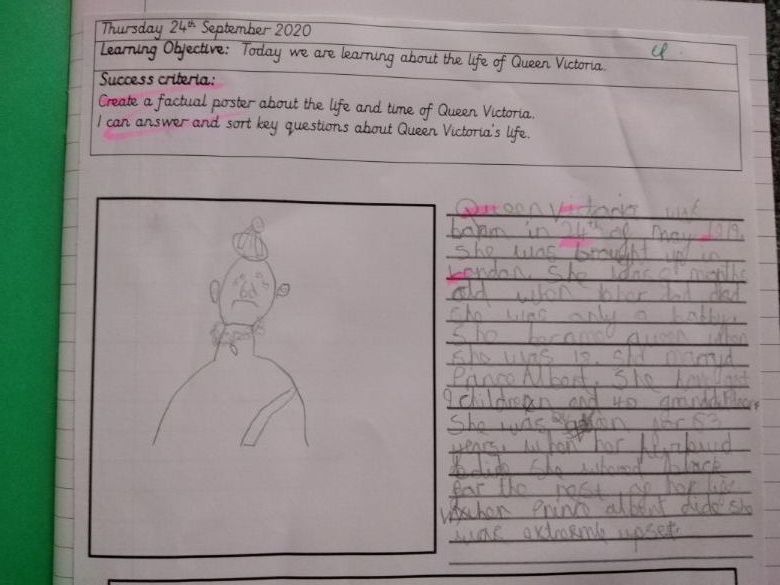 Thursday 24th September 2020
Learning Objective: Today we are learning about the life of Queen Victoria.
Success criteria:
Create a factual poster about the life and time of Queen Victoria.
I can answer and sort key questions about Queen Victoria's life.
Queen Victoria
in 24th of May 1819.
She was brought up in
London. She was 8 months
old when her dad
she was only a
She became queen when
she was 18. She
Prince Albert. She
9 children and 40
She was for 63
years. when her
she black
for the rest of her life
when Prince albert she
was upset.